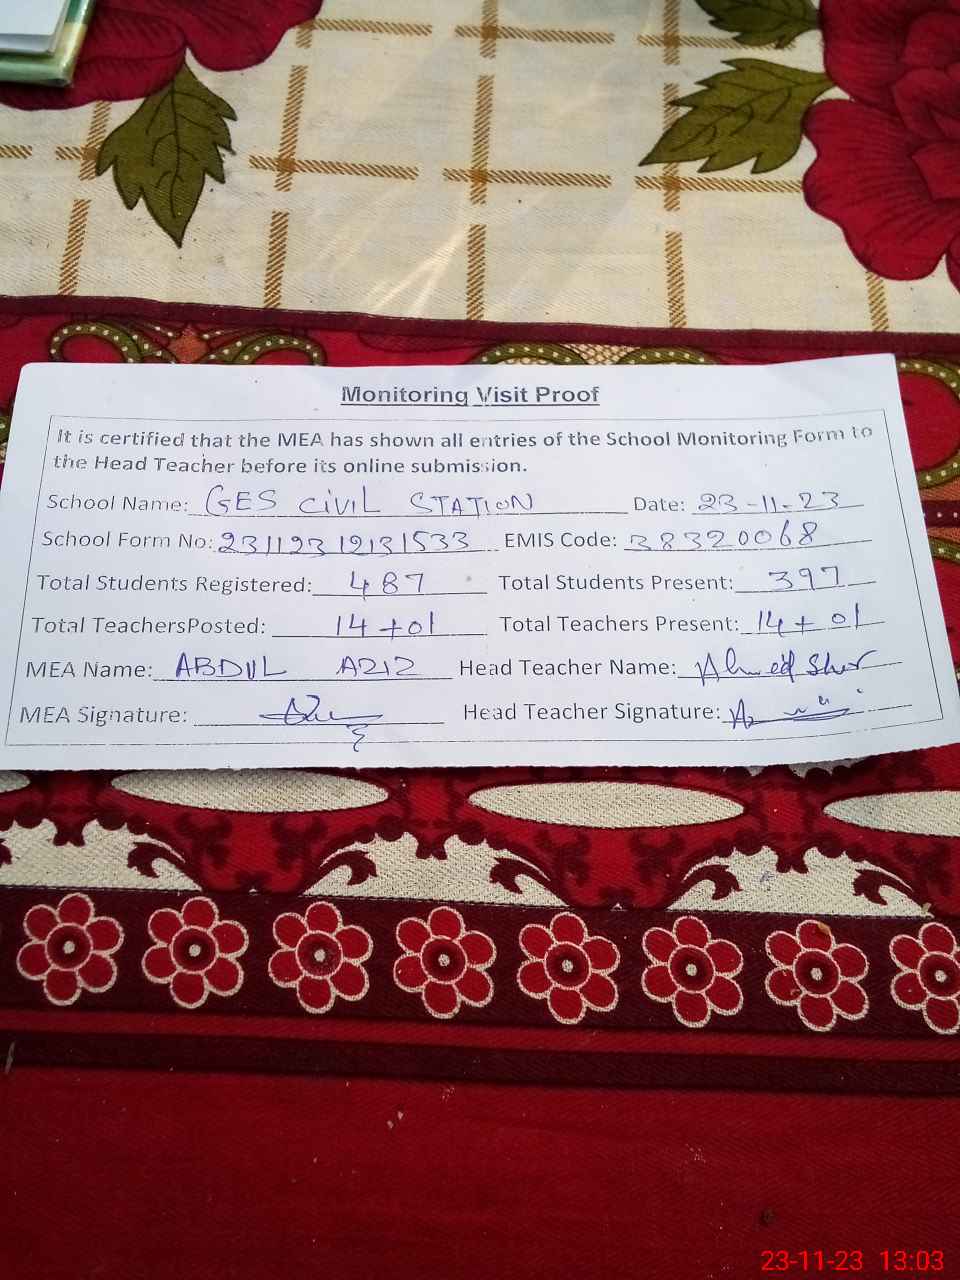 Monitoring Visit Proof
It is certified that the MEA has shown all entries of the School Monitoring Form to
the Head Teacher before its online submission.
School Name: GES CiViL STATioN Date: 23-11-23
School Form No: 23112312131533 EMIS Code: 38320068
Total Students Registered: 487 Total Students Present: 397
Total TeachersPosted: 14+01 Total Teachers Present: 14+01
MEA Name: ABDUL AZIZ Head Teacher Name: Ahmed Sher
MEA Signature: Head Teacher Signature:
23-11-23 13:03